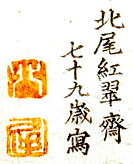 北尾紅翠齋
七十九歳寫